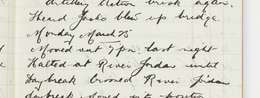 artillery Action break again.
Heard Jacko blew up bridge
Monday March 25
Moved out 7 pm last night
Halted at River Jordan until
Daybreak Crossed River Jordan
daybreak moved into